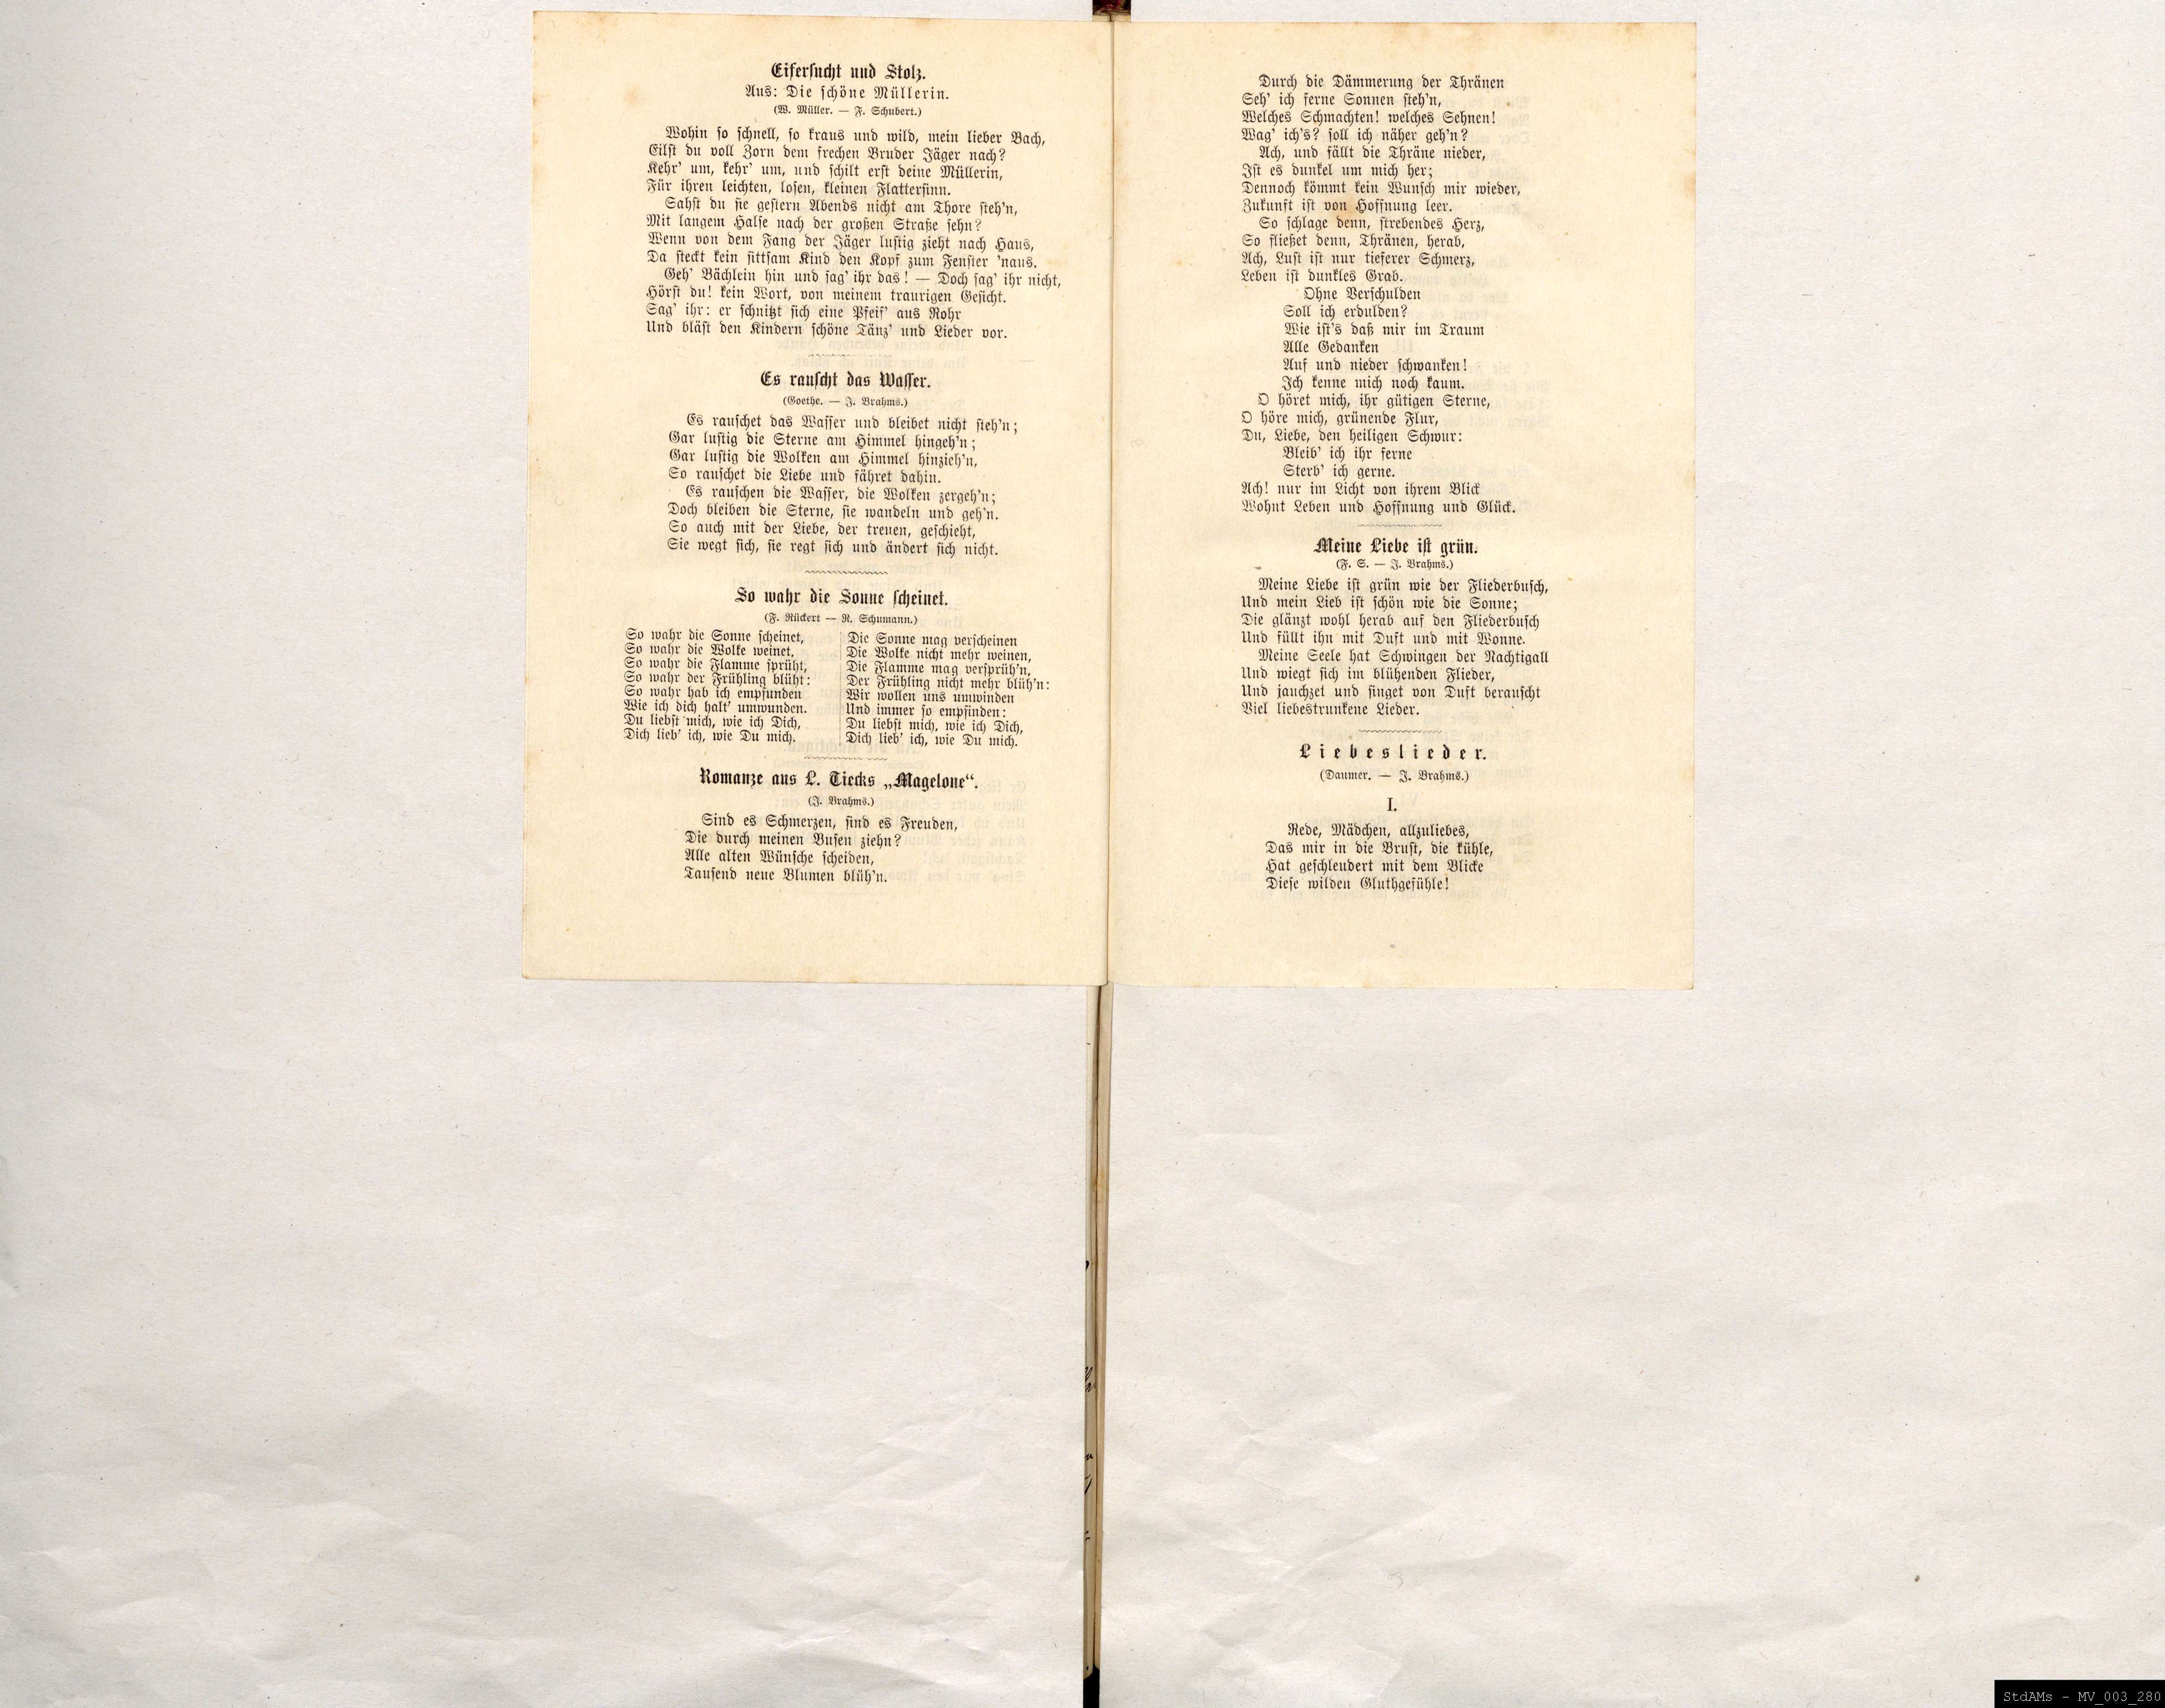 Eifersucht und Stolz.
Aus: Die schöne Müllerin.
(W. Müller. — F. Schubert.)
Wohin so schnell, so kraus und wild, mein lieber Bach,
Eilst du voll Zorn dem frechen Bruder Jäger nach?
Kehr' um, kehr' um, und schilt erst deine Müllerin,
Für ihren leichten, losen, kleinen Flattersinn.
Sahst du sie gestern Abends nicht am Thore steh'n,
Mit langem Halse nach der großen Straße sehn?
Wenn von dem Fang der Jäger lustig zieht nach Haus,
Da steckt kein sittsam Kind den Kopf zum Fenster 'naus.
Geh' Bächlein hin und sag' ihr das! — Doch sag' ihr nicht,
Hörst du! kein Wort, von meinem traurigen Gesicht.
Sag' ihr: er schnitzt sich eine Pfeif' aus Rohr
Und bläst den Kindern schöne Tänz' und Lieder vor.
Es rauscht das Wasser.
(Goethe. — J. Brahms.)
Es rauschet das Wasser und bleibet nicht steh'n;
Gar lustig die Sterne am Himmel hingeh'n;
Gar lustig die Wolken am Himmel hinzieh'n,
So rauschet die Liebe und fähret dahin.
Es rauschen die Wasser, die Wolken zergeh'n;
Doch bleiben die Sterne, sie wandeln und geh'n.
So auch mit der Liebe, der treuen, geschieht,
Sie wegt sich, sie regt sich und ändert sich nicht.
So wahr die Sonne scheinet.
(F. Rückert — R. Schumann.)
So wahr die Sonne scheinet,
So wahr die Wolke weinet,
So wahr die Flamme sprüht,
So wahr der Frühling blüht:
So wahr hab ich empfunden
Wie ich dich halt' umwunden.
Du liebst mich, wie ich Dich,
Dich lieb' ich, wie Du mich.
Die Sonne mag verscheinen
Die Wolke nicht mehr weinen,
Die Flamme mag versprüh'n,
Der Frühling nicht mehr blüh'n:
Wir wollen uns umwinden
Und immer so empfinden:
Du liebst mich, wie ich Dich,
Dich lieb' ich, wie Du mich.
Romanze aus L. Tiecks „Magelone“.
(J. Brahms.)
Sind es Schmerzen, sind es Freuden,
Die durch meinen Busen ziehn?
Alle alten Wünsche scheiden,
Tausend neue Blumen blüh'n.
Durch die Dämmerung der Thränen
Seh' ich ferne Sonnen steh'n,
Welches Schmachten! welches Sehnen!
Wag' ich's? soll ich näher geh'n?
Ach, und fällt die Thräne nieder,
Ist es dunkel um mich her;
Dennoch kömmt kein Wunsch mir wieder,
Zukunft ist von Hoffnung leer.
So schlage denn, strebendes Herz,
So fließet denn, Thränen, herab,
Ach, Lust ist nur tieferer Schmerz,
Leben ist dunkles Grab.
Ohne Verschulden
Soll ich erdulden?
Wie ist's daß mir im Traum
Alle Gedanken
Auf und nieder schwanken!
Ich kenne mich noch kaum.
O höret mich, ihr gütigen Sterne,
O höre mich, grünende Flur,
Du, Liebe, den heiligen Schwur:
Bleib' ich ihr ferne
Sterb' ich gerne.
Ach! nur im Licht von ihrem Blick
Wohnt Leben und Hoffnung und Glück.
Meine Liebe ist grün.
(F. S. — J. Brahms.)
Meine Liebe ist grün wie der Fliederbusch,
Und mein Lieb ist schön wie die Sonne;
Die glänzt wohl herab auf den Fliederbusch
Und füllt ihn mit Duft und mit Wonne.
Meine Seele hat Schwingen der Nachtigall
Und wiegt sich im blühenden Flieder,
Und jauchzet und singet von Duft berauscht
Viel liebestrunkene Lieder.
Liebeslieder.
(Daumer. — J. Brahms.)
I.
Rede, Mädchen, allzuliebes,
Das mir in die Brust, die kühle,
Hat geschleudert mit dem Blicke
Diese wilden Gluthgefühle!
StdAMs - MV_003_280